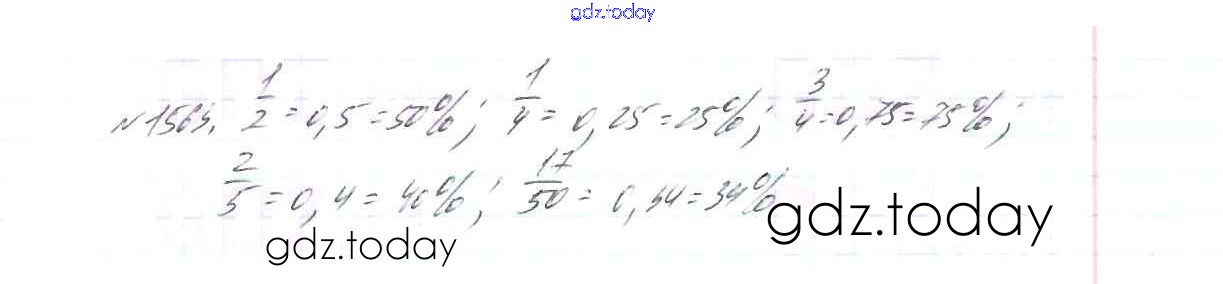 gdz.today
№1565. 1/2 = 0,5 = 50%; 1/4 = 0,25 = 25%; 3/4 = 0,75 = 75%;
2/5 = 0,4 = 40%; 17/50 = 0,34 = 34%
gdz.today
gdz.today